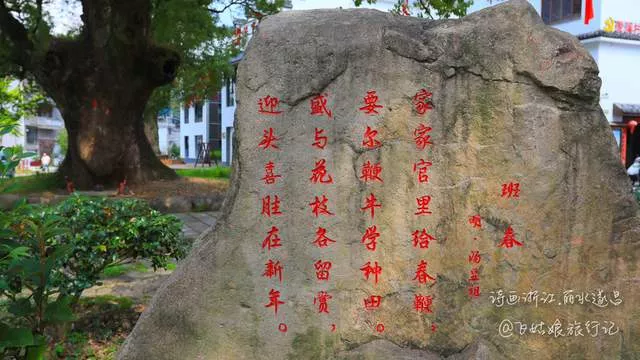 班春
明·汤显祖
家家官里给春鞭，
要尔鞭牛学种田。
盛与花枝各留赏，
迎头喜胜在新年。
诗画浙江.丽水遂昌
@飞姑娘旅行记